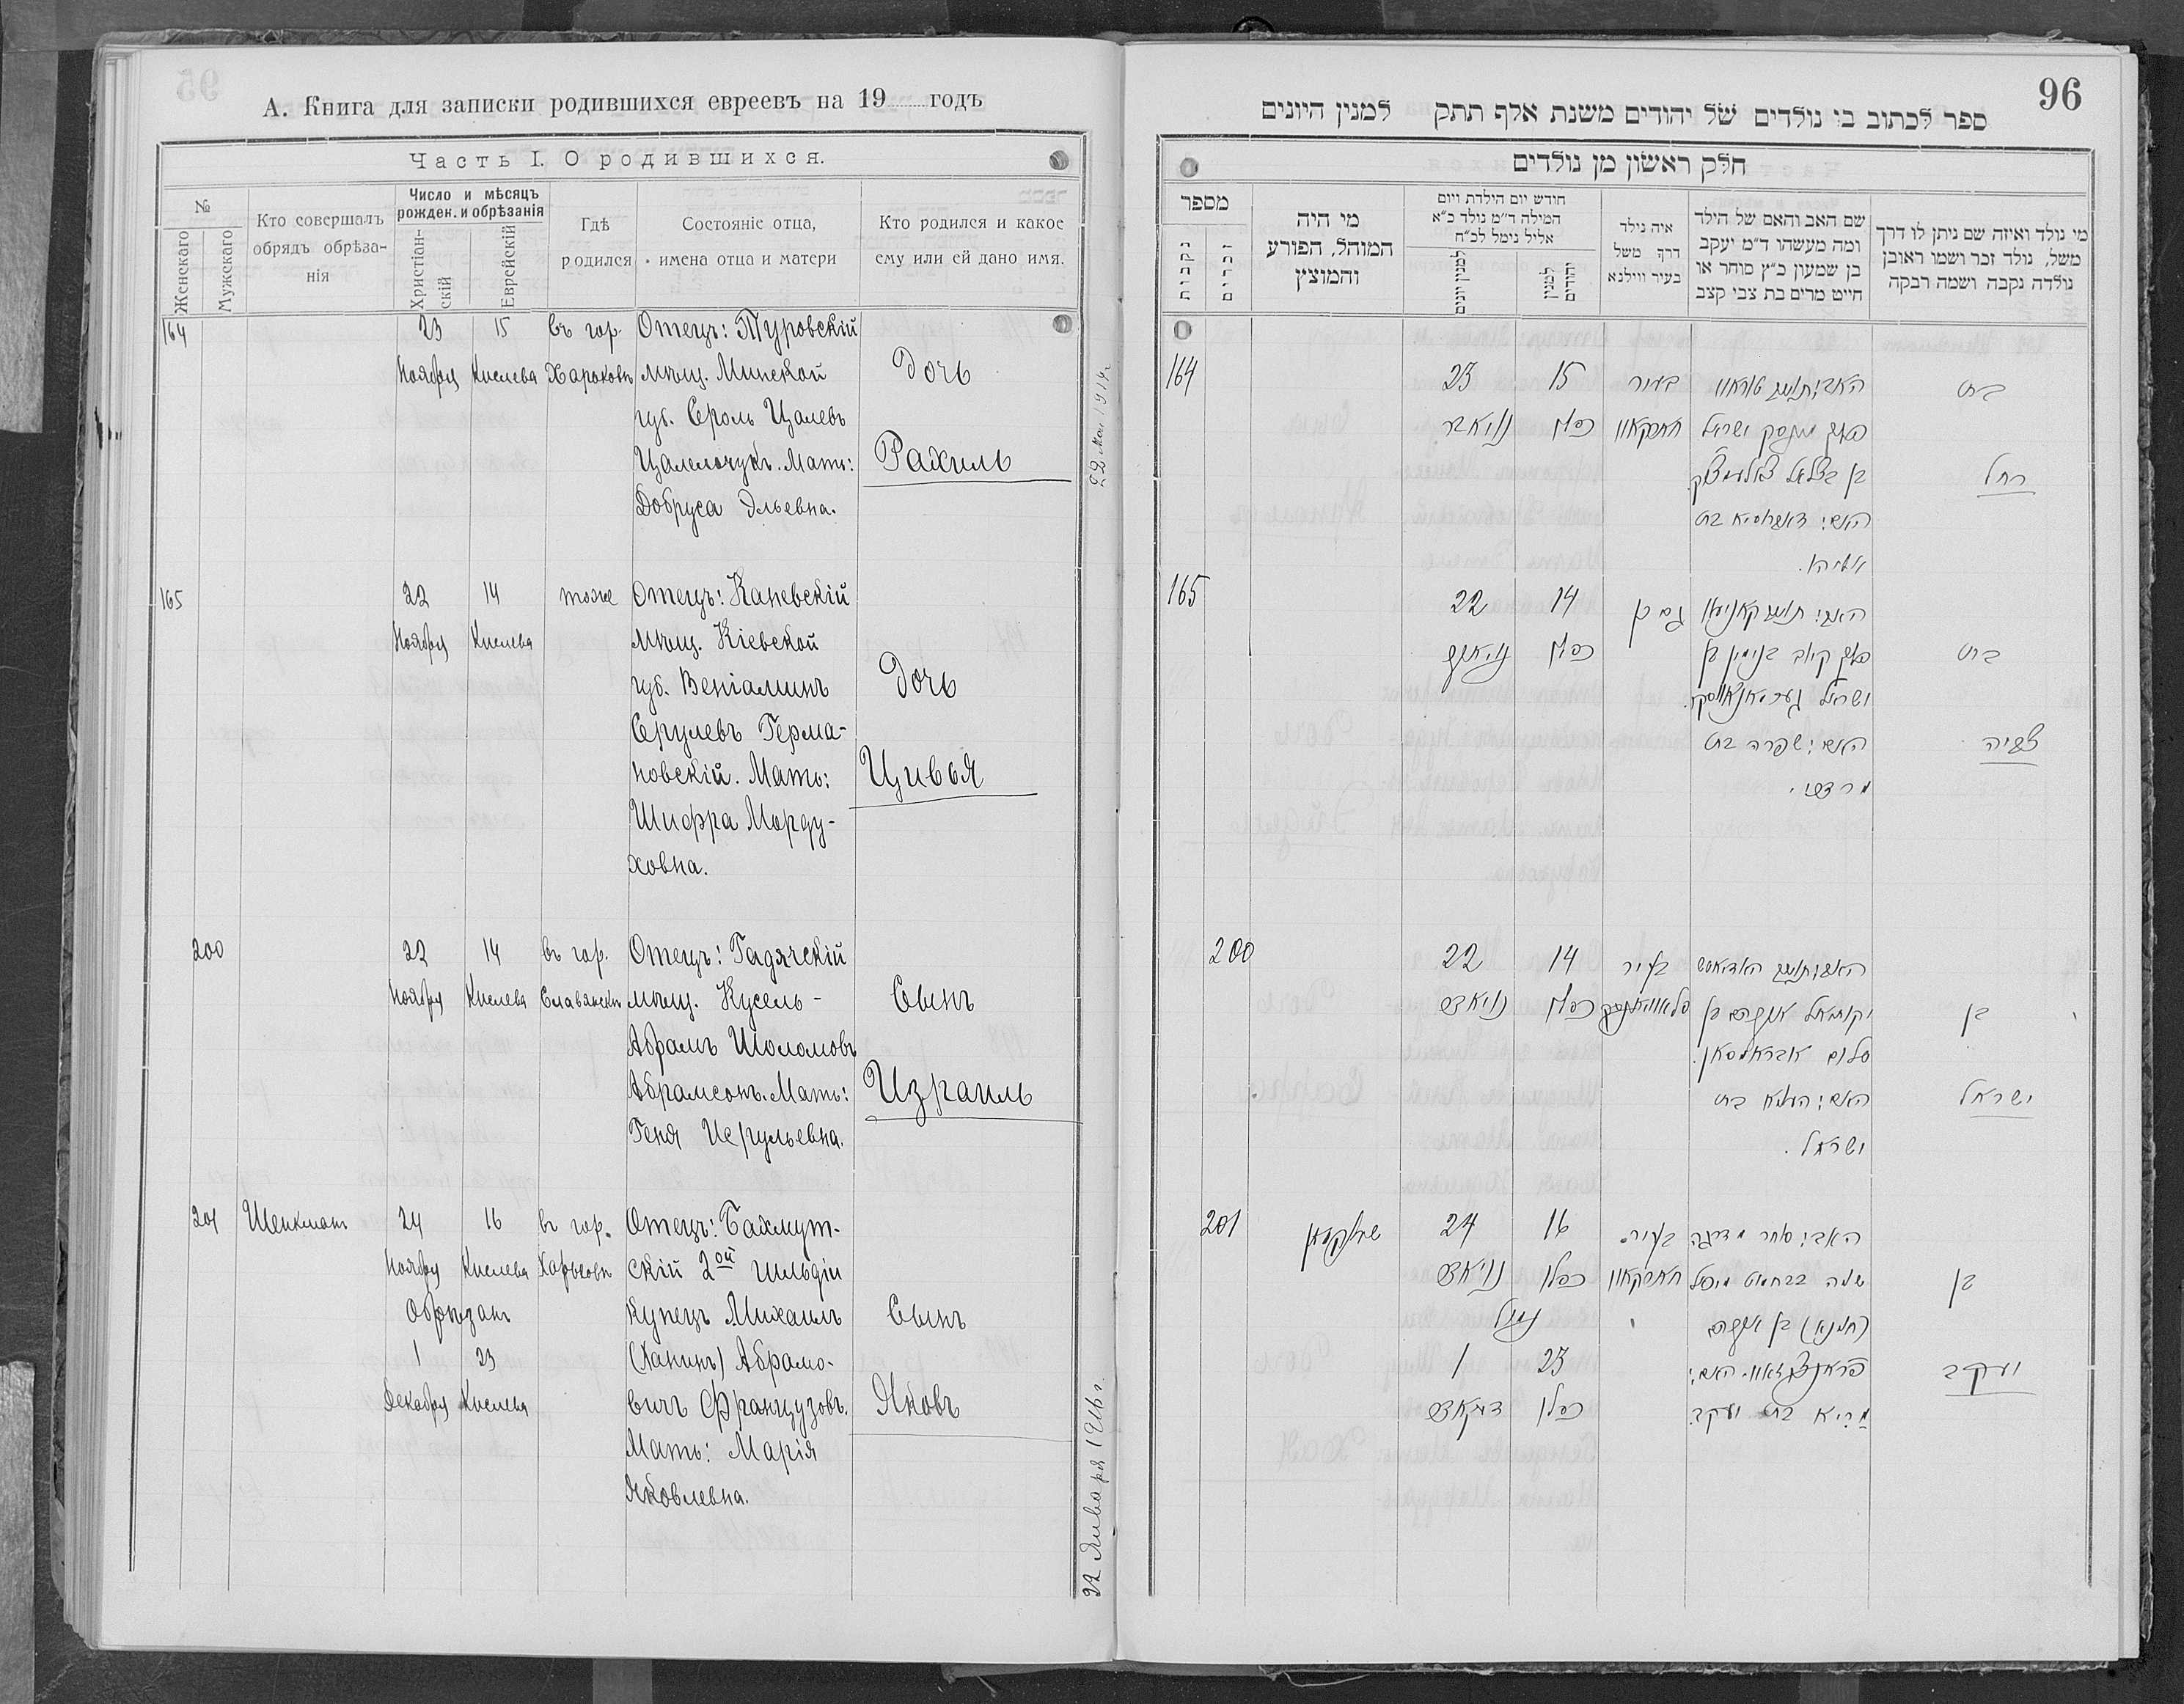 А. Книга для записки родившихся евреевъ на 19 годъ
Часть I. О родившихся.
№
Женскаго
Мужскаго
Кто совершалъ
обрядъ обрѣза-
нія
Число и мѣсяцъ
рожден. и обрѣзанія
Христіан-
скій
Еврейскій
Гдѣ
родился
Состояніе отца,
имена отца и матери
Кто родился и какое
ему или ей дано имя.
164
23
Ноября
15
Кислева
въ гор.
Харьковѣ
Отецъ: Туровскій
мѣщ. Минской
губ. Сроль Цалевъ
Цалельчукъ. Мать:
Добруса Эльевна.
Дочь
Рахиль
22 Мая 1914 г.
165
22
Ноября
14
Кислева
тоже
Отецъ: Каневскій
мѣщ. Кіевской
губ. Веніаминъ
Срулевъ Герма-
новскій. Мать:
Шифра Морду-
ховна.
Дочь
Цивья
200
22
Ноября
14
Кислева
въ гор.
Славянскѣ
Отецъ: Гадячскій
мѣщ. Кусель-
Абрамъ Шоломовъ
Абрамсонъ. Мать:
Геня Исрульевна.
Сынъ
Израиль
201
Шенкманъ
24
Ноября
16
Кислева
Обрѣзанъ
1
Декабря
23
Кислева
въ гор.
Харьковѣ
Отецъ: Бахмут-
скій 2ой гильдіи
купецъ Михаилъ
(Ханинъ) Абрамо-
вичъ Французовъ.
Мать: Марія
Яковлевна.
Сынъ
Яковъ
22 Января 1916 г.
96
ספר לכתוב בו נולדים של יהודים משנת אלף תתק למנין היונים
חלק ראשון מן נולדים
מספר
נקבות
זכרים
מי היה
המוהל, הפורע
והמוצץ
חודש יום הילדת ויום
המילה ד״מ נולד כ״א
אליל נימל לכ״ח
למנין יונים
למנין
יהודים
איה נולד
דרך משל
בעיר ווילנא
שם האב והאם של הילד
ומה מעשהו ד״מ יעקב
בן שמעון כ״ץ סוחר או
חייט מרים בת צבי קצב
מי נולד ואיזה שם ניתן לו דרך
משל, נולד זכר ושמו ראובן
נולדה נקבה ושמה רבקה
164
23
15
בעיר
בת
רחל
165
22
14
גם כן
בנימין בן
ישראל
האם: שפרה בת
מרדכי.
בת
צביה
200
22
14
בעיר
יקותיאל אברהם בן
שלום אבראמסאן.
ישראל.
בן
ישראל
201
24
16
בעיר
נימול
1
23
בן אברהם
בת יעקב
בן
יעקב